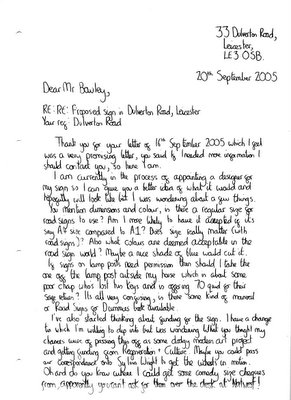 33 Dulverton Road,
Leicester,
LE3 0SB.
20th September 2005
Dear Mr Bawley,
RE: RE: Proposed sign in Dulverton Road, Leicester
Your ref: Dulverton Road
Thank you for your letter of 16th September 2005 which I feel
was a very promising letter, you said if I needed more information I
should contact you, so here I am.
I am currently in the process of appointing a designer for
my sign so I can give you a better idea of what it would and
hopefully will look like but I was wondering about a few things.
You mention dimensions and colour, is there a regular size for
road signs to use? Am I more likely to have it accepted if it's
say A4 size compared to A1? Does size really matter (with
road signs)? Also what colours are deemed acceptable in the
road sign world? Maybe a nice shade of blue would cut it.
If signs on lamp posts need permission then should I take the
one off the lamp post outside my house which is about some
poor chap who's lost his keys and is offering 70 quid for their
safe return? Its all very confusing, is there some kind of manual
or Road Signs for Dummies book available
I've also started thinking about funding for the sign. I have a change
to which I'm willing to dip into but was wondering what you thought my
chances were of passing this off as some dodgy modern art project
and getting funding from Regeneration & Culture. Maybe you could pass
our correspondence onto to get the wheels in motion.
Oh and do you know where I could get some comedy size cheques
from, apparently you can't ask for them over the desk at Natwest!